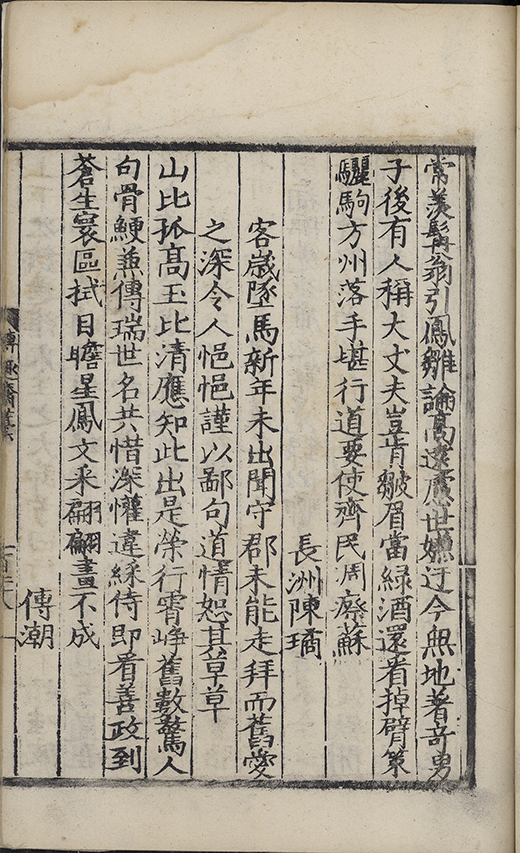 常羨髯翁引鳳雛論高遠處世嫵迂今無地著奇男
子後有人稱大丈夫豈肯皺眉當綠酒還看掉臂策
驪駒方州落手堪行道要使齊民周瘵蘇
長洲陳璚
客歲墜馬新年未出聞守郡未能走拜而舊愛
之深令人悒悒謹以鄙句道情恕其草草
山比孤高玉比清應知此出是榮行霄崢舊數驚人
句骨鯁蕉傳瑞世名共惜深懽違綵侍即看善政到
蒼生寰區拭目瞻星鳳文采翩翩畫不成
傅潮